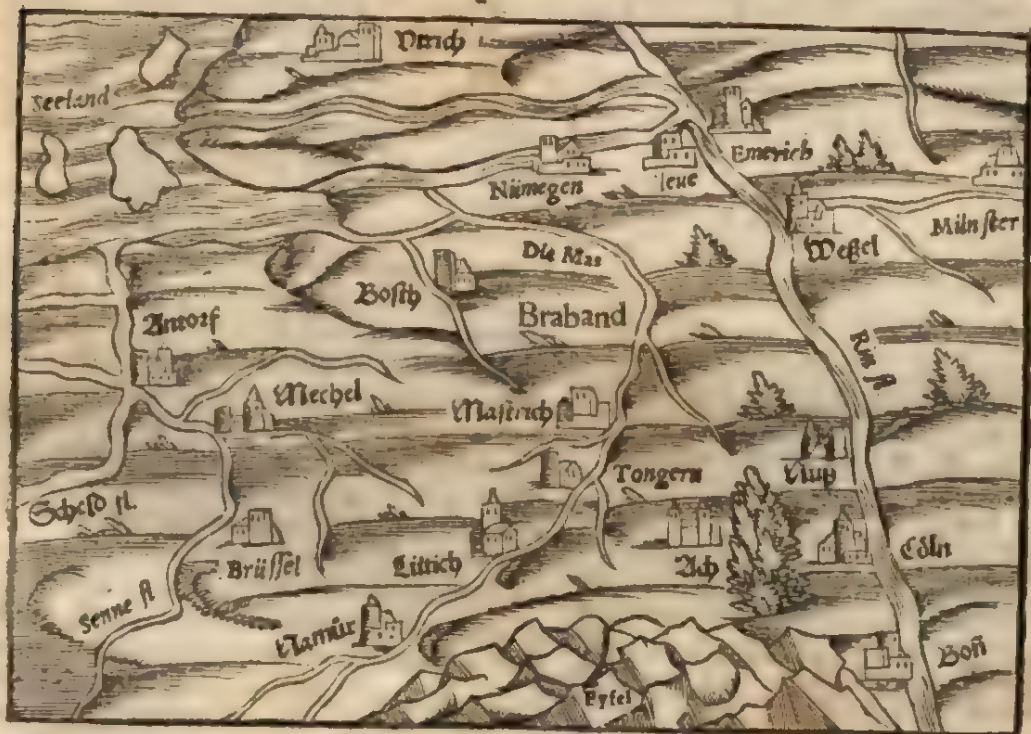 Vtrich
Seeland
Emerich
Nümegen
Münster
Weßel
Die Mas
Bosch
Braband
Antorf
Rin fl
Mechel
Mastrich
Nuys
Tongern
Scheld fl.
Brüssel
Littich
Ach
Cöln
Senne fl
Namür
Bon̄
Eyfel